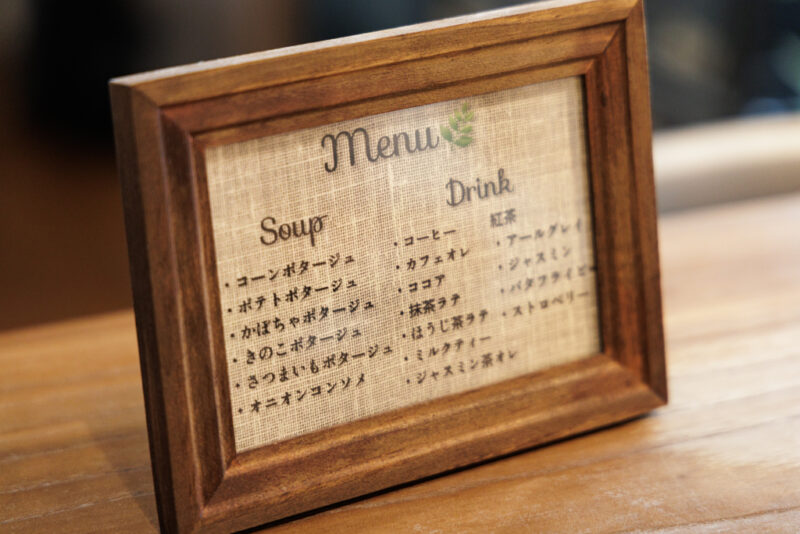 Menu
Soup
・コーンポタージュ
・ポテトポタージュ
・かぼちゃポタージュ
・きのこポタージュ
・さつまいもポタージュ
・オニオンコンソメ
Drink
・コーヒー
・カフェオレ
・ココア
・抹茶ラテ
・ほうじ茶ラテ
・ミルクティー
・ジャスミン茶オレ
紅茶
・アールグレイ
・ジャスミン
・バタフライピー
・ストロベリー